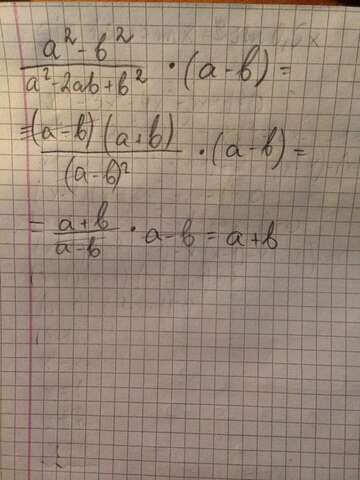 a² - b² / a² - 2ab + b² · (a - b) =
= (a - b)(a + b) / (a - b)² · (a - b) =
= a + b / a - b · a - b = a + b